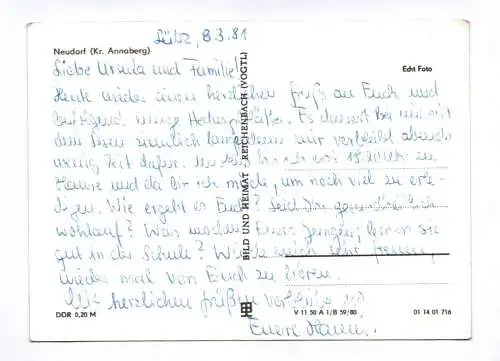 Lübz, 8.3.81
Neudorf (Kr. Annaberg)
Echt Foto
Liebe Ursula und Familie!
Heute wieder einen herzlichen Gruß an Euch und
einige Es dauert bei mir mit
dem ziemlich mir verbleibt abends
wenig Zeit dafür. bin ich vor 18.20 Uhr zu
Hause und da bin ich müde, um noch viel zu erle-
digen. Wie ergeht es Euch? Seid Ihr gesundheitlich
wohlauf? Was machen Eure Jungen; lernen sie
gut in der Schule? Würde mich sehr freuen,
wieder mal von Euch zu hören.
Mit herzlichen Grüßen verbleibe ich
Eure
BILD UND HEIMAT REICHENBACH (VOGTL)
DDR 0,20 M
V 11 50 A 1/B 59/80
01 14 01 716